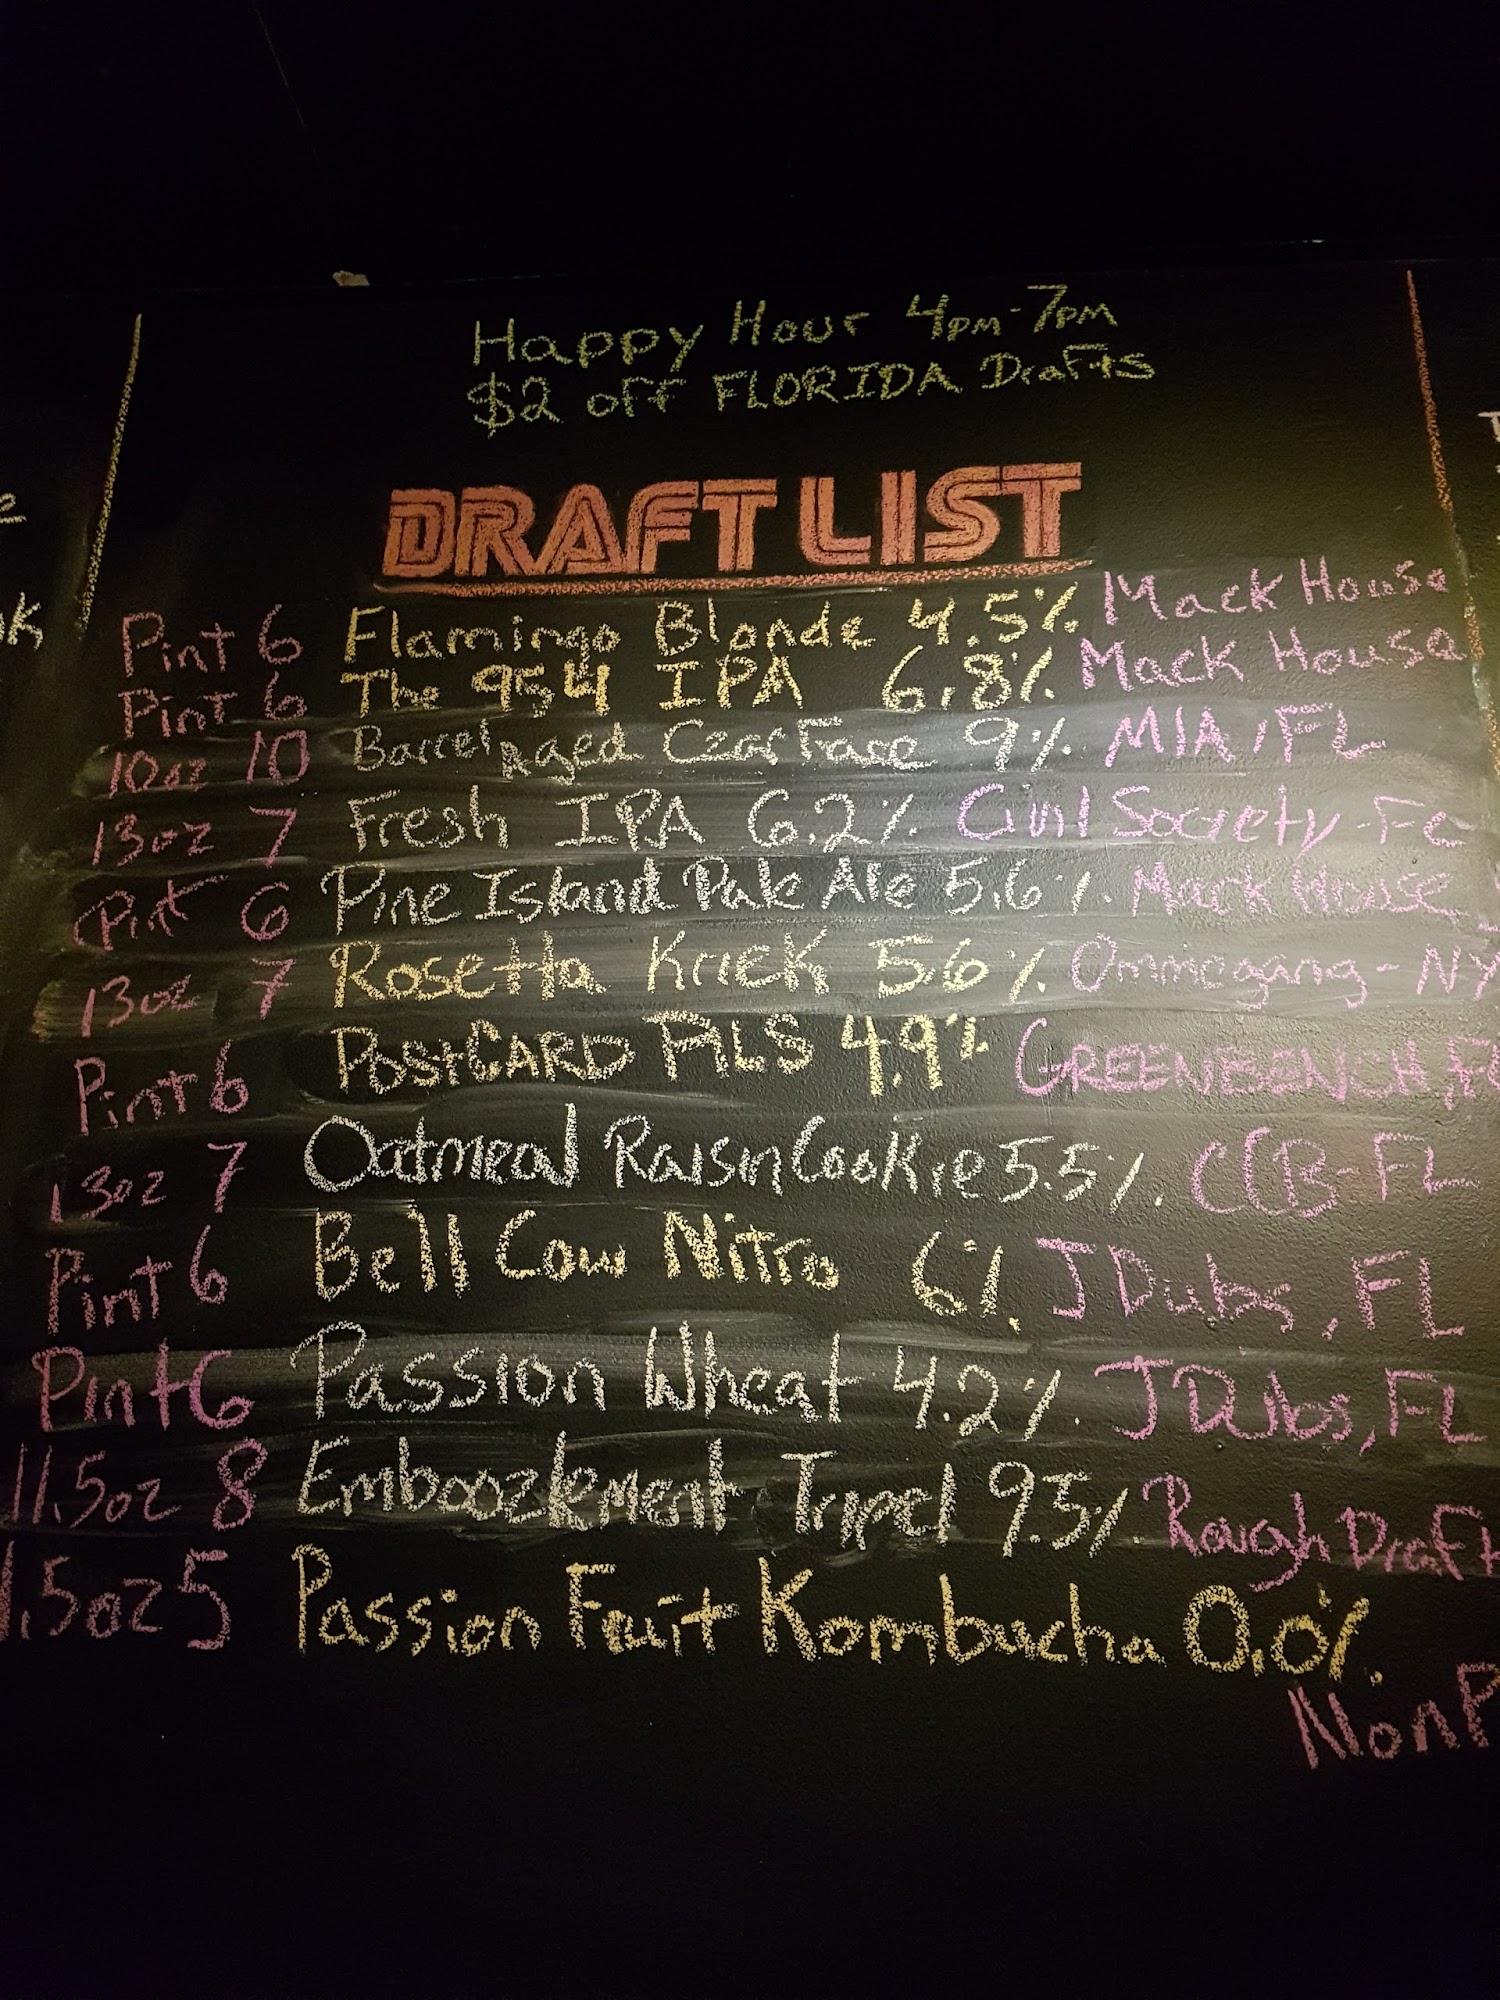 Happy Hour 4pm-7pm
$2 off FLORIDA Drafts
DRAFT LIST
Pint 6 Flamingo Blonde 4.5% Mack House
Pint 6 The 954 IPA 6.8% Mack House
10oz 10 Barrel Aged Czar Face 9% MIA, FL
13oz 7 Fresh IPA 6.2% Civil Society-FL
Pint 6 Pine Island Pale Ale 5.6% Mack House
13oz 7 Rosetta Kriek 5.6% Ommegang-NY
Pint 6 PostCARD PILS 4.9% GREENBENCH, FL
13oz 7 Oatmeal Raisin Cookie 5.5% CCB-FL
Pint 6 Bell Cow Nitro 6% JDubs, FL
Pint 6 Passion Wheat 4.2% JDubs, FL
11.5oz 8 Emboozlement Tripel 9.5% Rough Draft
1.5oz 5 Passion Fruit Kombucha 0.0%
NonP